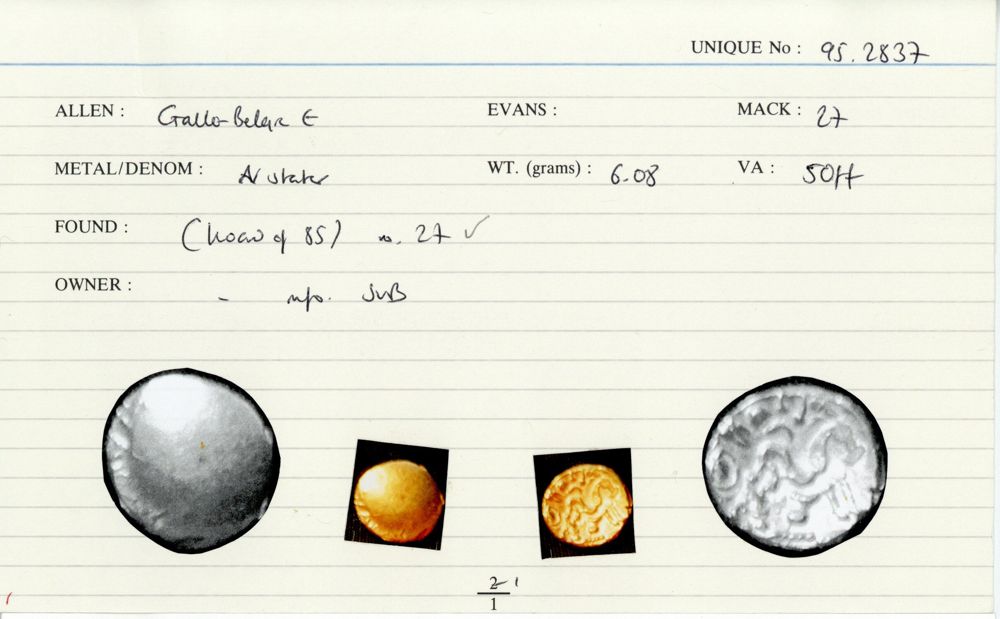 UNIQUE No : 95.2837
ALLEN : Gallo-Belgic E EVANS : MACK : 27
METAL/DENOM : AV stater WT. (grams) : 6.08 VA :
FOUND : (hoard of 85) no. 27 ✓
OWNER : - info.
2 1
1